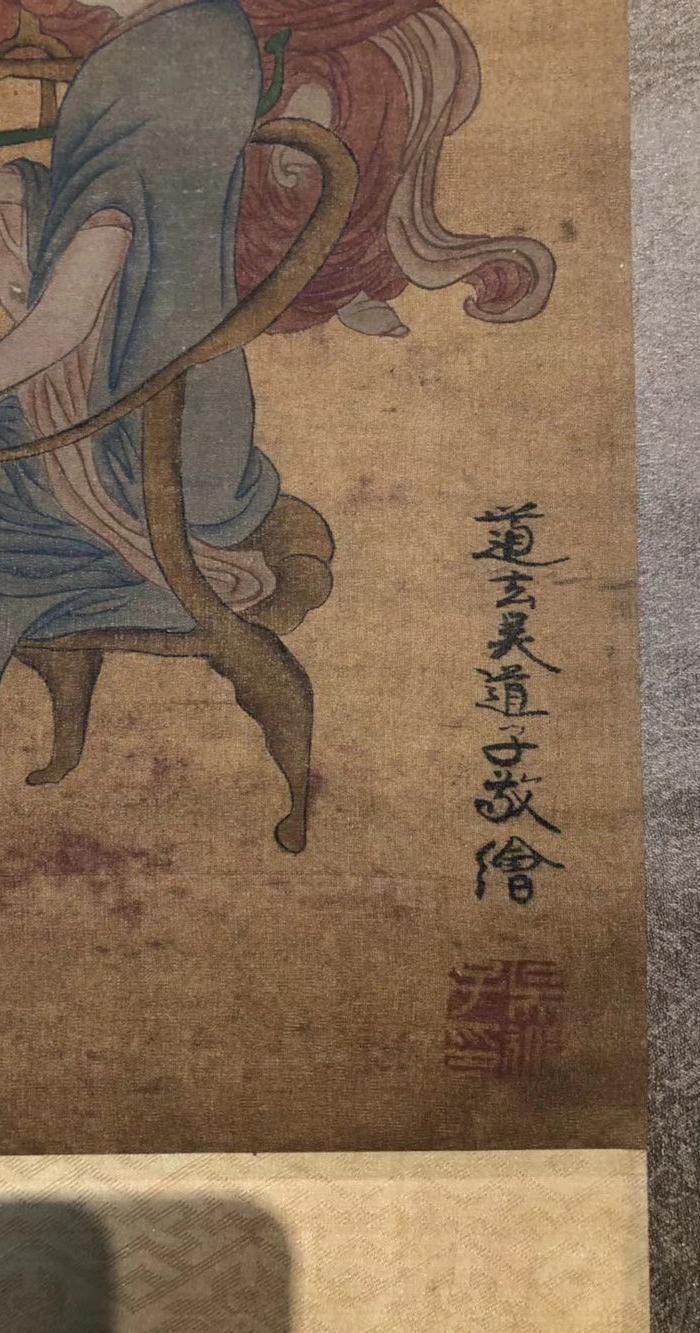 道玄吳道子敬繪